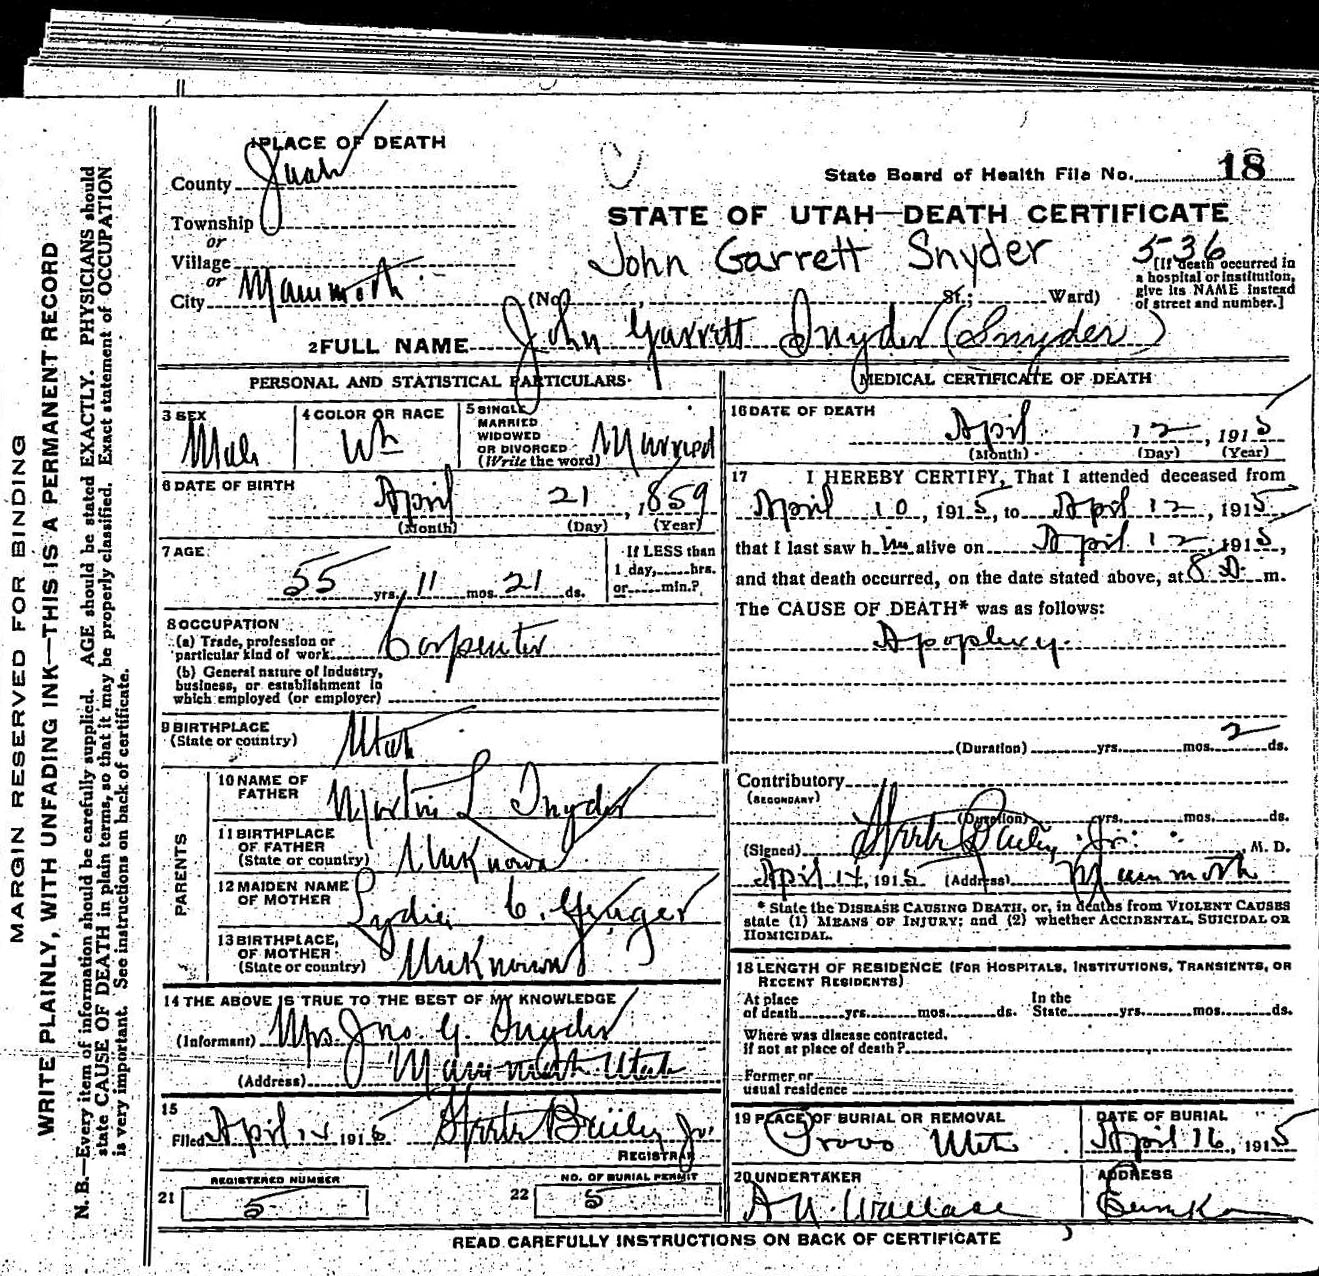 MARGIN RESERVED FOR BINDING
WRITE PLAINLY, WITH UNFADING INK—THIS IS A PERMANENT RECORD
N. B.—Every item of information should be carefully supplied. AGE should be stated EXACTLY. PHYSICIANS should
state CAUSE OF DEATH in plain terms, so that it may be properly classified. Exact statement of OCCUPATION
is very important. See instructions on back of certificate.
1 PLACE OF DEATH
County Juab
State Board of Health File No. 18
Township
or
STATE OF UTAH—DEATH CERTIFICATE
Village
or
John Garrett Snyder 536
City Mammoth (No. St.; Ward)
[If death occurred in
a hospital or institution,
give its NAME instead
of street and number.]
2 FULL NAME John Garrett Snyder (Snyder)
PERSONAL AND STATISTICAL PARTICULARS
3 SEX Male
4 COLOR OR RACE Wh
5 SINGLE
MARRIED
WIDOWED
OR DIVORCED
(Write the word) Married
6 DATE OF BIRTH April 21, 1859
(Month) (Day) (Year)
7 AGE 55 yrs. 11 mos. 21 ds.
If LESS than
1 day, hrs.
or min.?
8 OCCUPATION
(a) Trade, profession or
particular kind of work Carpenter
(b) General nature of industry,
business, or establishment in
which employed (or employer)
9 BIRTHPLACE
(State or country) Utah
PARENTS
10 NAME OF
FATHER Martin L Snyder
11 BIRTHPLACE
OF FATHER
(State or country) Unknown
12 MAIDEN NAME
OF MOTHER Lydia C.
13 BIRTHPLACE
OF MOTHER
(State or country) Unknown
14 THE ABOVE IS TRUE TO THE BEST OF MY KNOWLEDGE
(Informant) Mrs Jno G. Snyder
(Address) Mammoth Utah
15
Filed April 14 1915 Steele Bailey Jr.
REGISTRAR
REGISTERED NUMBER
21 5
NO. OF BURIAL PERMIT
22 5
MEDICAL CERTIFICATE OF DEATH
16 DATE OF DEATH
April 12, 1915
(Month) (Day) (Year)
17 I HEREBY CERTIFY, That I attended deceased from
April 10, 1915, to April 12, 1915
that I last saw him alive on April 12, 1915,
and that death occurred, on the date stated above, at 8 m.
The CAUSE OF DEATH* was as follows:
Apoplexy.
(Duration) yrs. mos. 2 ds.
Contributory
(SECONDARY)
(Duration) yrs. mos. ds.
(Signed) Steele Bailey Jr. M. D.
April 14, 1915 (Address) Mammoth
* State the DISEASE CAUSING DEATH, or, in deaths from VIOLENT CAUSES
state (1) MEANS OF INJURY; and (2) whether ACCIDENTAL, SUICIDAL OR
HOMICIDAL.
18 LENGTH OF RESIDENCE (FOR HOSPITALS, INSTITUTIONS, TRANSIENTS, OR
RECENT RESIDENTS)
At place
of death yrs. mos. ds.
In the
State yrs. mos. ds.
Where was disease contracted,
if not at place of death?
Former or
usual residence
19 PLACE OF BURIAL OR REMOVAL
Provo Utah
DATE OF BURIAL
April 16, 1915
20 UNDERTAKER
A N. Wallace
ADDRESS
Eureka
READ CAREFULLY INSTRUCTIONS ON BACK OF CERTIFICATE